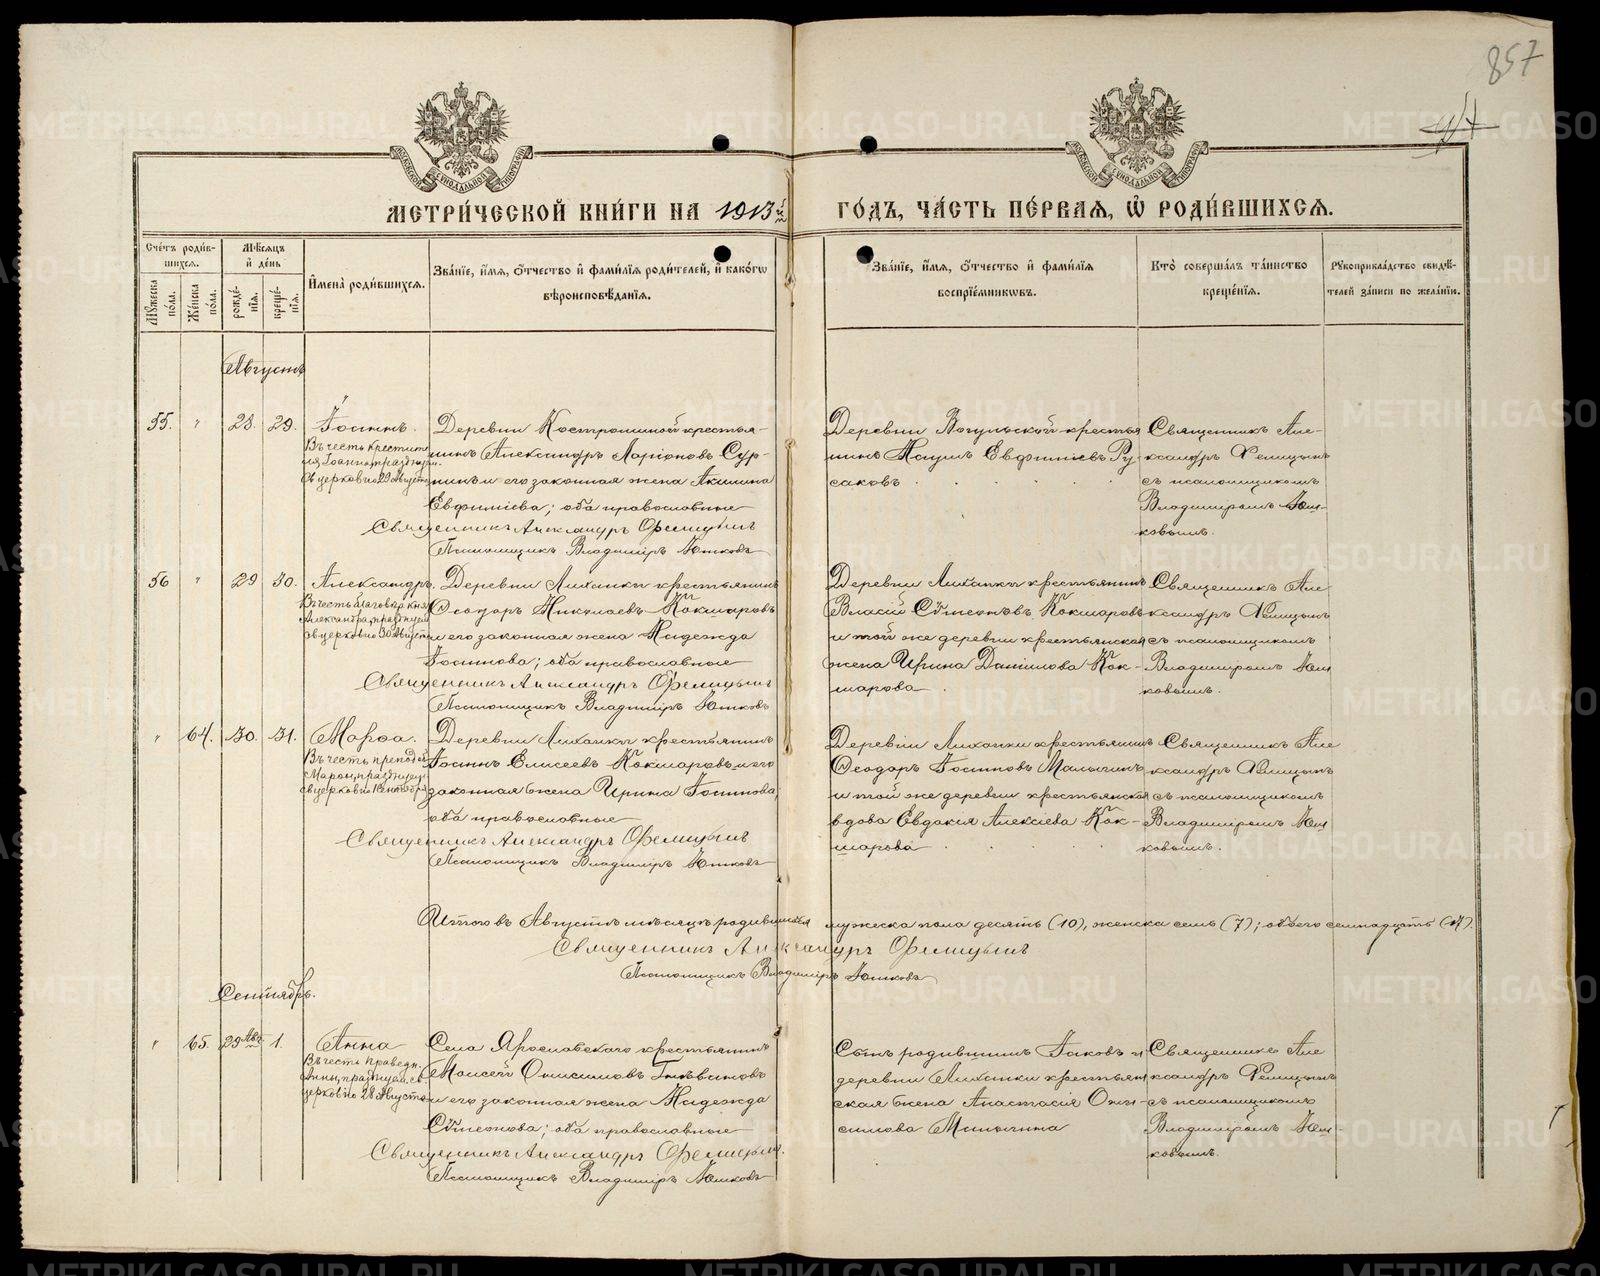 857
МЕТРИ́ЧЕСКОЙ КНИ́ГИ НА 1913й ГО́ДЪ, ЧА́СТЬ ПЕ́РВАЯ, Ѡ҆ РОДИ́ВШИХСЯ.
Сче́тъ роди́вшихся.
Мѣ́сяцъ и҆ де́нь
И҆мена̀ роди́вшихся.
Зва́нїе, и҆́мя, ѻ҆́тчество и҆ фами́лїя роди́телей, и҆ како́гѡ вѣроисповѣ́данїя.
Зва́нїе, и҆́мя, ѻ҆́тчество и҆ фами́лїя воспрїе́мникѡвъ.
Кто̀ соверша́лъ та́инство креще́нїя.
Рꙋкоприкла́дство свидѣ́телей за́писи по жела́нїю.
Мꙋ́жеска по́ла.
Же́нска по́ла.
рожде́нїя.
креще́нїя.
Августъ
55. " 28. 29. Іоаннъ.
Въ честь Крестителя Іоанна, празднуем. въ церкви 29 Августа
Деревни Костроминой крестья-
нинъ Александръ Маріоновъ Сур-
нинъ и его законная жена Акилина
Евфиміева; оба православные
Священникъ Александръ Фелицынъ
Псаломщикъ Владиміръ Юшковъ
Деревни Вогульской крестья
нинъ Наумъ Евфиміевъ Ру-
саковъ
Священникъ Але-
ксандръ Фелицынъ
съ псаломщикомъ
Владиміромъ Юш-
ковымъ.
56 " 29 30. Александръ.
Въ честь благовѣр. княз.
Александра, празднуем.
въ церкви 30 Августа
Деревни Лиханки крестьянинъ
Ѳеодоръ Николаевъ Кокшаровъ
и его законная жена Надежда
Іоаннова; оба православные
Священникъ Александръ Фелицынъ
Псаломщикъ Владиміръ Юшковъ
Деревни Лиханки крестьянинъ
Власій Сѵмеоновъ Кокшаровъ
и той же деревни крестьянская
жена Ирина Даніилова Кок-
шарова
Священникъ Але
ксандръ Фелицынъ
съ псаломщикомъ
Владиміромъ Юш
ковымъ.
" 64. 30. 31. Марѳа.
Въ честь преподоб.
Марѳы, празднуем.
въ церкви 1 Сентября
Деревни Лиханки крестьянинъ
Іоаннъ Елисеевъ Кокшаровъ и его
законная жена Ирина Іоаннова,
оба православные
Священникъ Александръ Фелицынъ
Псаломщикъ Владиміръ Юшковъ
Деревни Лиханки крестьянинъ
Ѳеодоръ Іоанновъ Малыгинъ
и той же деревни крестьянская
вдова Евдокія Алексіева Кок-
шарова
Священникъ Але
ксандръ Фелицынъ
съ псаломщикомъ
Владиміромъ Юш
ковымъ.
Итого въ Августѣ мѣсяцѣ родившихся мужеска пола десять (10), женска семь (7); обоего семнадцать (17).
Священникъ Александръ Фелицынъ
Псаломщикъ Владиміръ Юшковъ
Сентябрь.
" 65. 29 Авг. 1. Анна
Въ честь праведн.
Анны, празднуем. въ
церкви 28 Августа
Села Ярославскаго крестьянинъ
Моисей Онисимовъ Гнѣвановъ
и его законная жена Надежда
Сѵмеонова; оба православные
Священникъ Александръ Фелицынъ.
Псаломщикъ Владиміръ Юшковъ
Сынъ родившимъ Іаковъ и
деревни Лиханки крестьян
ская жена Анастасія Они-
симова Малыгина
Священникъ Але
ксандръ Фелицынъ
съ псаломщикомъ
Владиміромъ Юш-
ковымъ.
METRIKI.GASO-URAL.RU